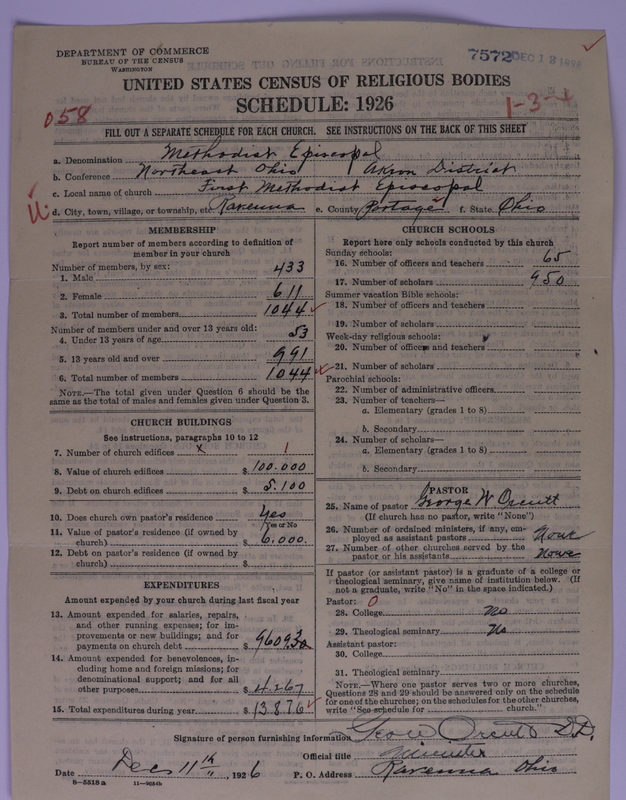 DEPARTMENT OF COMMERCE
BUREAU OF THE CENSUS
WASHINGTON
7572 DEC 13 1926
UNITED STATES CENSUS OF RELIGIOUS BODIES
SCHEDULE: 1926
058
1-3-4
FILL OUT A SEPARATE SCHEDULE FOR EACH CHURCH. SEE INSTRUCTIONS ON THE BACK OF THIS SHEET
a. Denomination Methodist Episcopal
b. Conference Northeast Ohio Akron District
c. Local name of church First Methodist Episcopal
d. City, town, village, or township, etc. Ravenna e. County Portage f. State Ohio
MEMBERSHIP
Report number of members according to definition of
member in your church
Number of members, by sex:
1. Male 433
2. Female 611
3. Total number of members 1044
Number of members under and over 13 years old:
4. Under 13 years of age 53
5. 13 years old and over 991
6. Total number of members 1044
NOTE.—The total given under Question 6 should be
the same as the total of males and females given under Question 3.
CHURCH BUILDINGS
See instructions, paragraphs 10 to 12
7. Number of church edifices x 1
8. Value of church edifices $ 100.000
9. Debt on church edifices $ 5.100
10. Does church own pastor's residence Yes
Yes or No
11. Value of pastor's residence (if owned by
church) $ 6.000.
12. Debt on pastor's residence (if owned by
church) $
EXPENDITURES
Amount expended by your church during last fiscal year
13. Amount expended for salaries, repairs,
and other running expenses; for im-
provements or new buildings; and for
payments on church debt $ 9609.30
14. Amount expended for benevolences, in-
cluding home and foreign missions; for
denominational support; and for all
other purposes $ 4.267
15. Total expenditures during year $ 13.876
CHURCH SCHOOLS
Report here only schools conducted by this church
Sunday schools:
16. Number of officers and teachers 65
17. Number of scholars 950
Summer vacation Bible schools:
18. Number of officers and teachers
19. Number of scholars
Week-day religious schools:
20. Number of officers and teachers
21. Number of scholars
Parochial schools:
22. Number of administrative officers
23. Number of teachers—
a. Elementary (grades 1 to 8)
b. Secondary
24. Number of scholars—
a. Elementary (grades 1 to 8)
b. Secondary
PASTOR
25. Name of pastor George W Orcutt
(If church has no pastor, write "None")
26. Number of ordained ministers, if any, em-
ployed as assistant pastors None
27. Number of other churches served by the
pastor or his assistants None
If pastor (or assistant pastor) is a graduate of a college or
theological seminary, give name of institution below. (If
not a graduate, write "No" in the space indicated.)
Pastor: 0
28. College No
29. Theological seminary No
Assistant pastor:
30. College
31. Theological seminary
NOTE.—Where one pastor serves two or more churches,
Questions 28 and 29 should be answered only on the schedule
for one of the churches; on the schedules for the other churches,
write "See schedule for church."
Signature of person furnishing information Geo W Orcutt D.D.
Official title Minister
Date Dec 11th, 1926 P. O. Address Ravenna Ohio
8-5518a 11-9034b